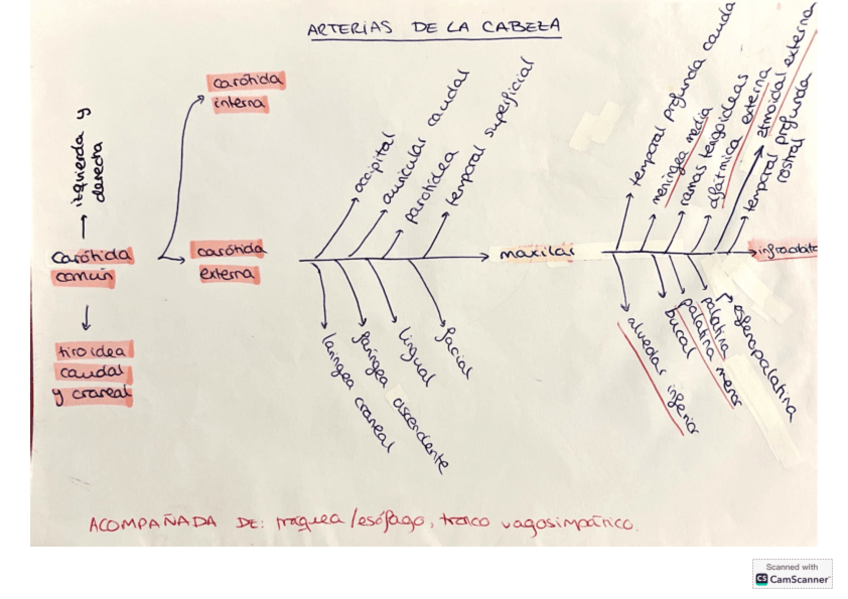 ARTERIAS DE LA CABEZA
izquierda y
derecha
carótida
interna
Carótida
común
carótida
externa
tiroidea
caudal
y craneal
occipital
auricular caudal
parotídea
temporal superficial
laringea craneal
faringea ascendente
lingual
facial
maxilar
temporal profunda cauda
meningea media
ramas terigoideas
oftálmica externa
etmoidal externa
temporal profunda
rostral
infraorbita
alveolar inferior
bucal
palatina menor
palatina
esfenopalatina
ACOMPAÑADA DE: traquea/esófago, tronco vagosimpático.
Scanned with
CS CamScanner